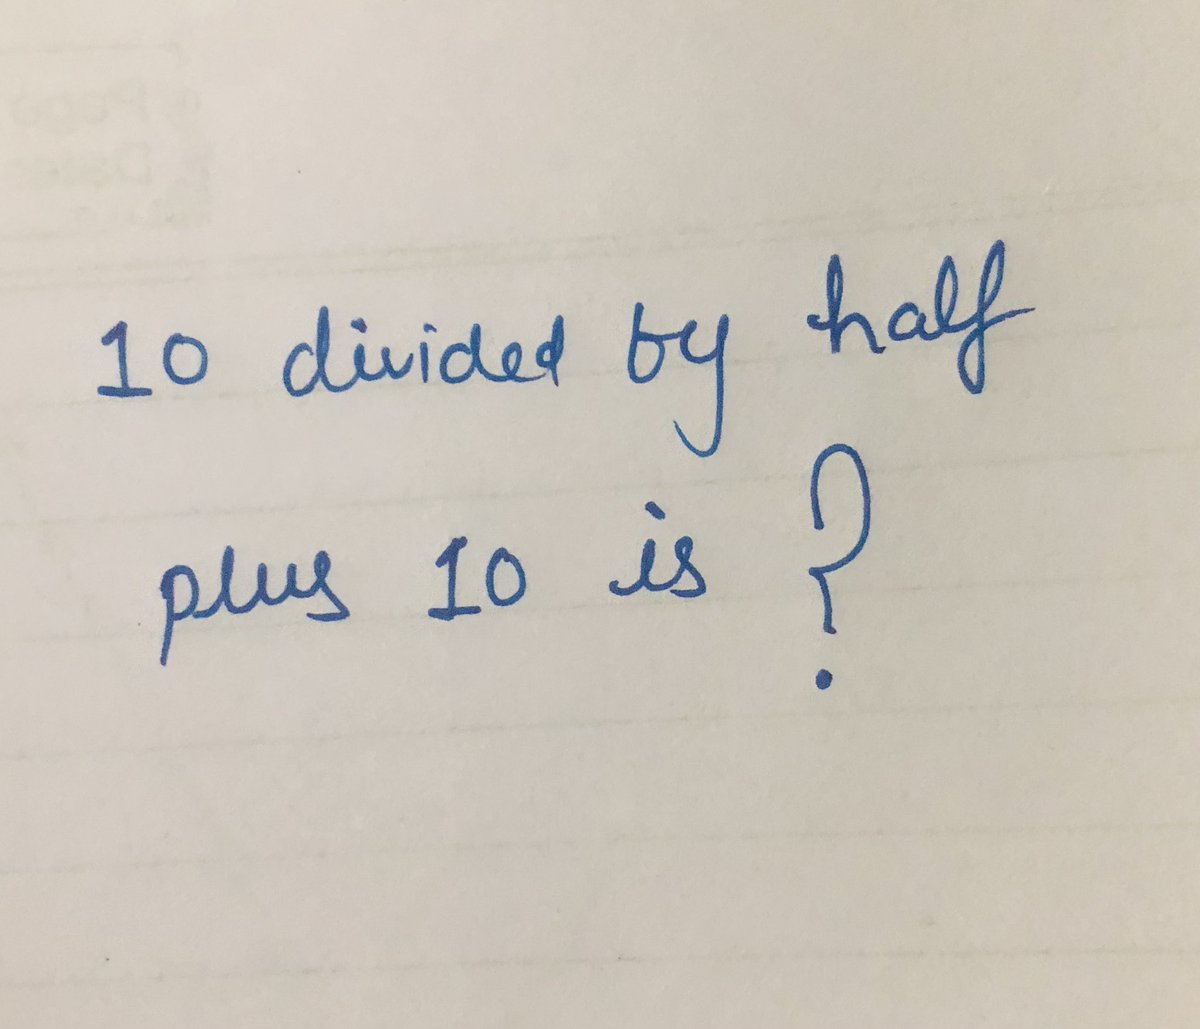 10 divided by half
plus 10 is ?